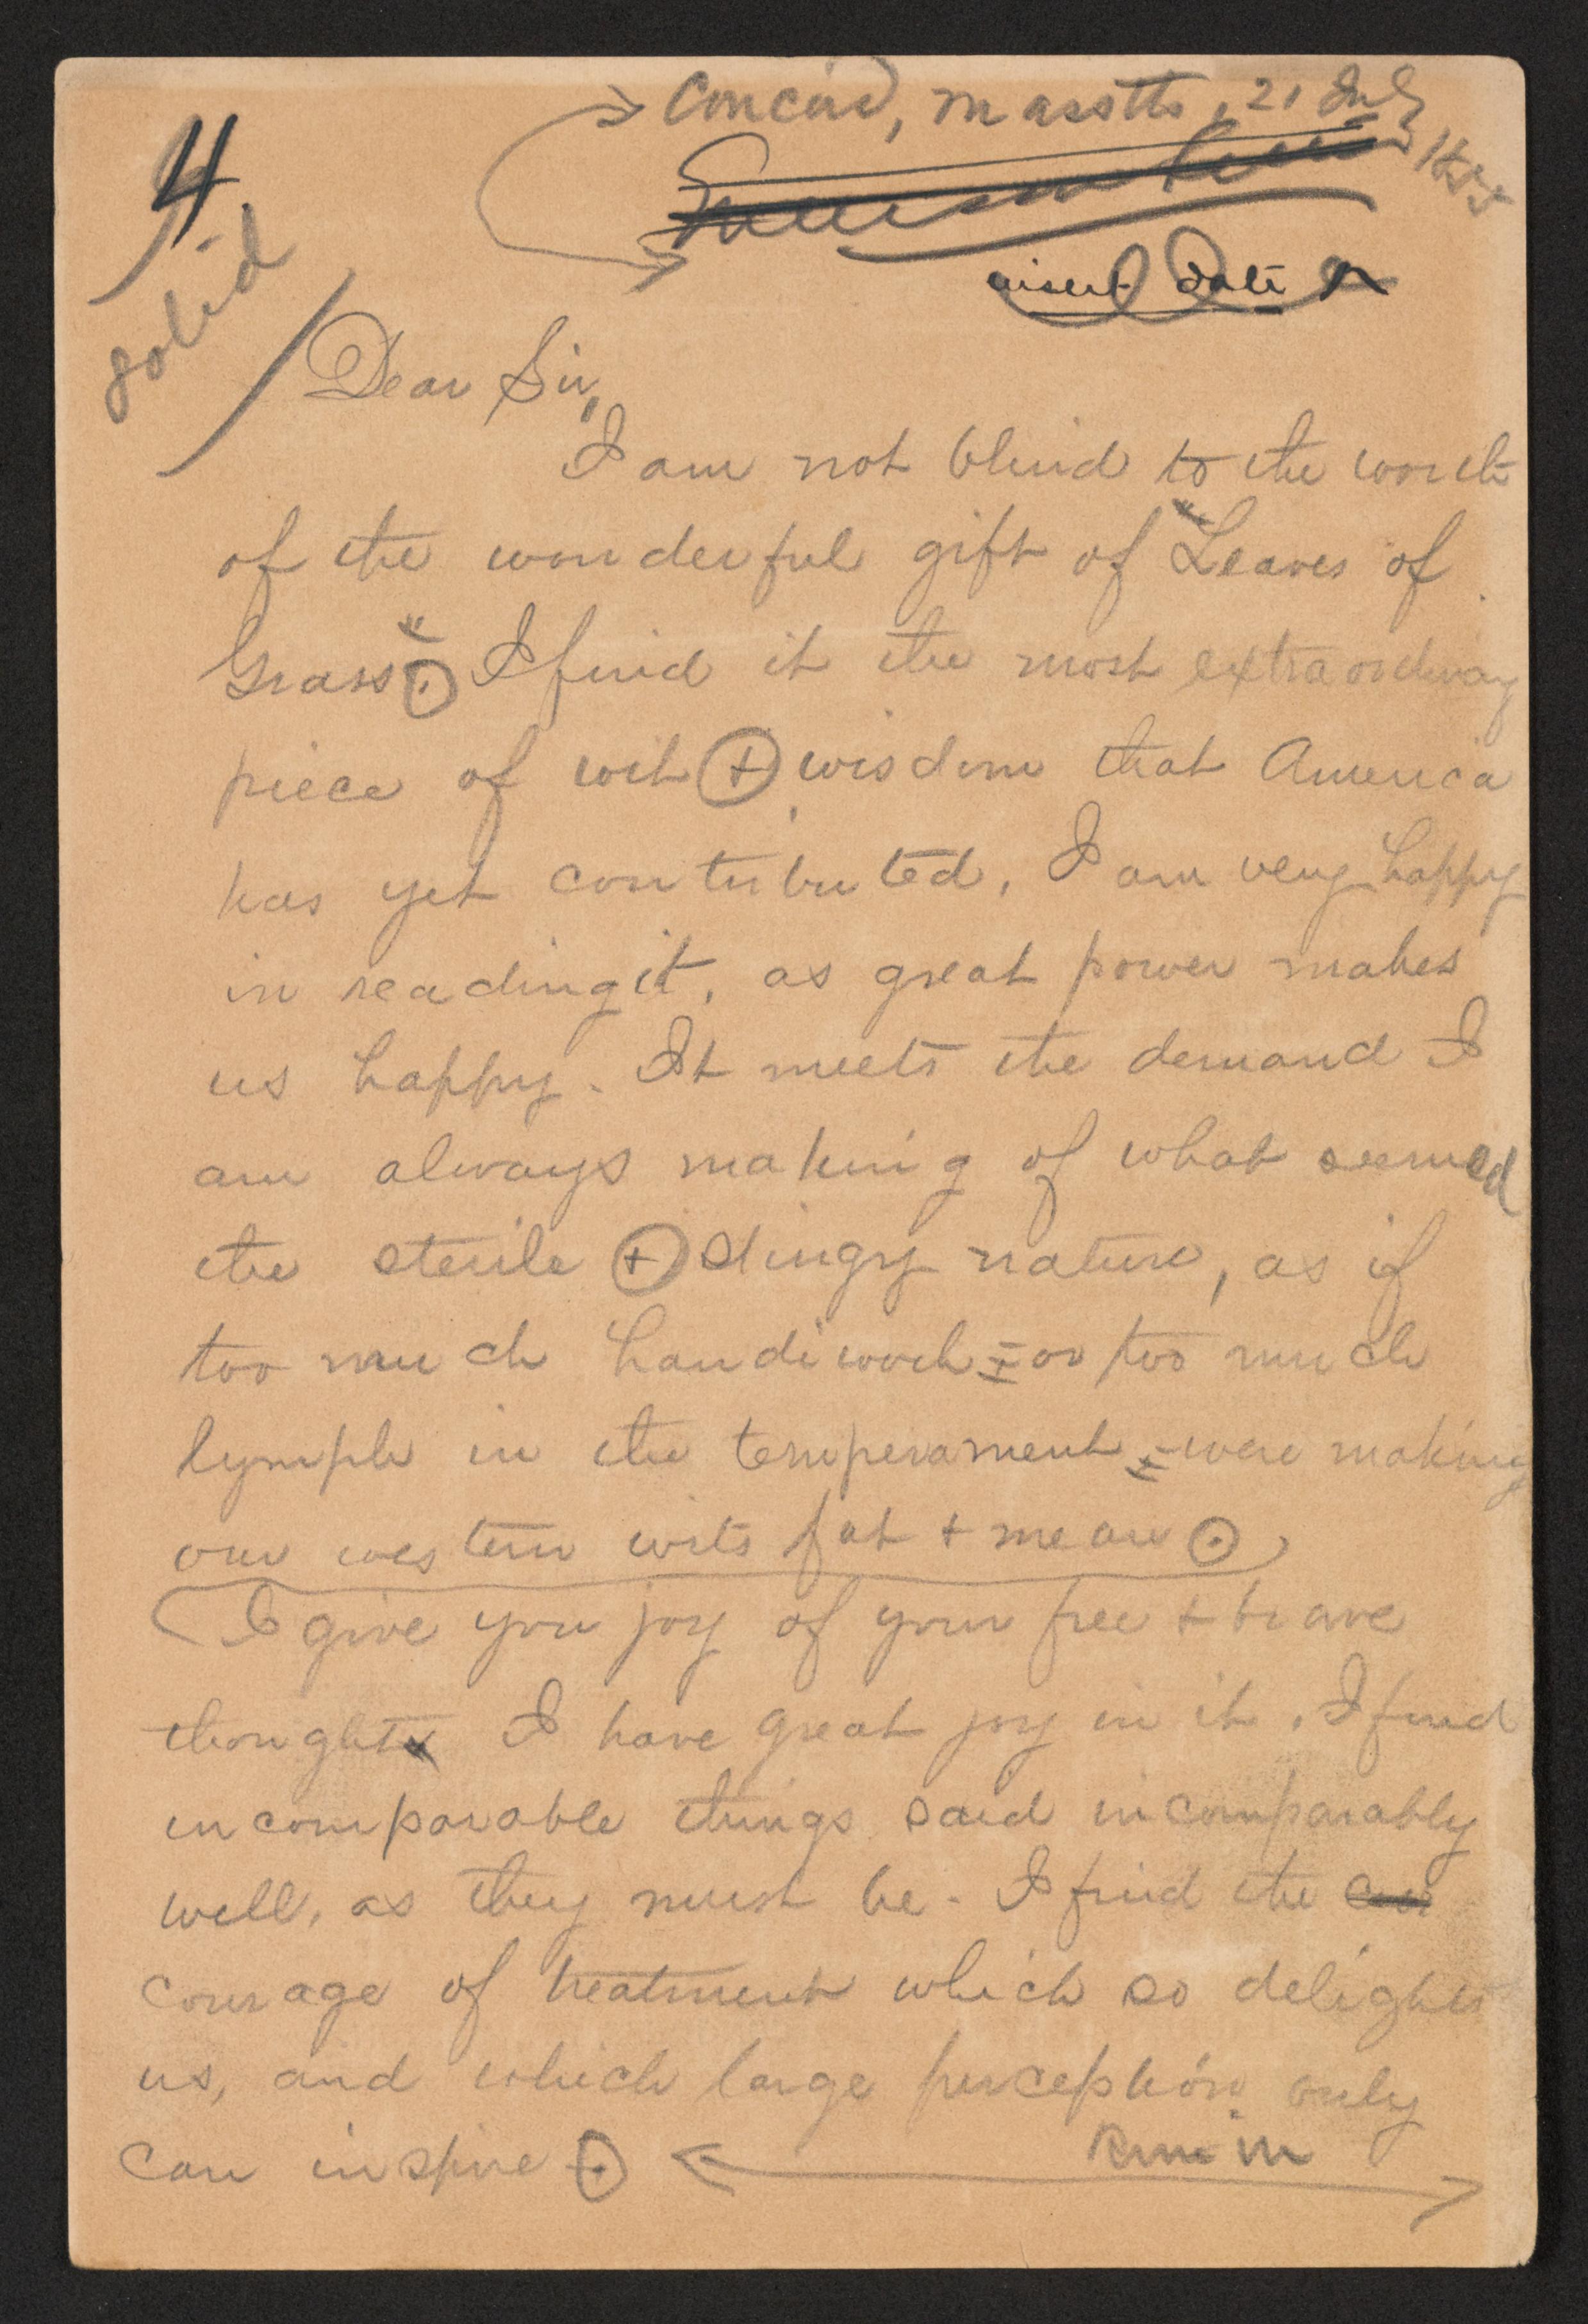 4
solid
Concord, Masstts, 21 July
1855
Emerson
insert date ^
Dear Sir,
I am not blind to the worth
of the wonderful gift of "Leaves of
Grass". I find it the most extraordinay
piece of wit + wisdom that America
has yet contributed, I am very happy
in reading it, as great power makes
us happy. It meets the demand I
am always making of what seemed
the sterile + dingy nature, as if
too much handiwork or too much
lymph in the temperament were making
our western wits fat + mean.
I give you joy of your free + brave
thought I have great joy in it. I find
incomparable things said incomparably
well, as they must be. I find the
courage of treatment which so delights
us, and which large perception only
can inspire. Run in